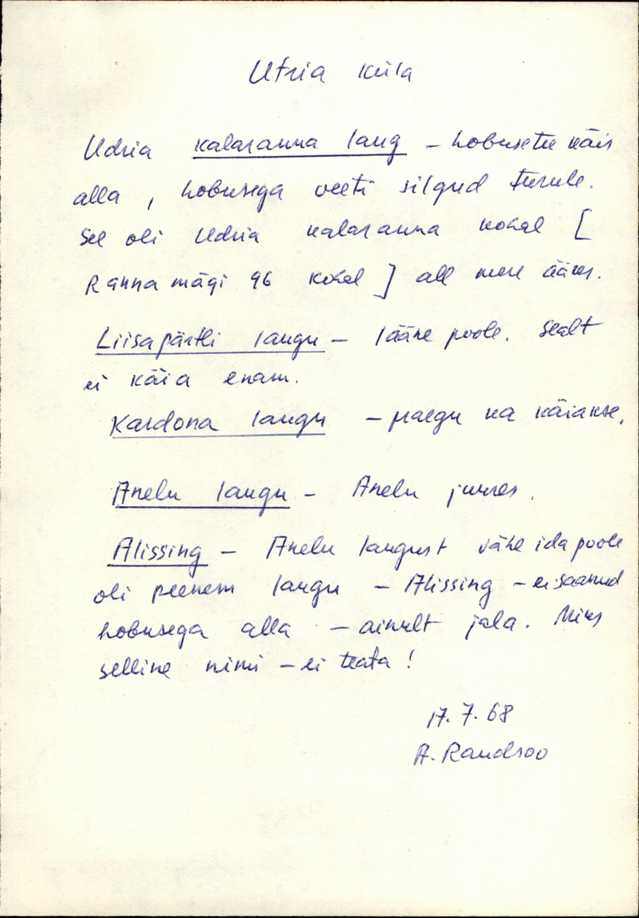 Utria küla
Udria kalaranna laug – hobusetee käis
alla, hobusega veeti silgud turule.
See oli Udria kalaranna kohal [
Rannamägi 96 kohal ] all mere ääres.
Liisapärtli laugu – lääne poole. Sealt
ei käia enam.
Kardona laugu – praegu ka käiakse.
Anelu laugu – Anelu juures.
Alissing – Anelu laugust vähe ida poole
oli peenem laugu – Alissing – ei saanud
hobusega alla – ainult jala. Miks
selline nimi – ei teata!
17.7.68
A. Raudsoo